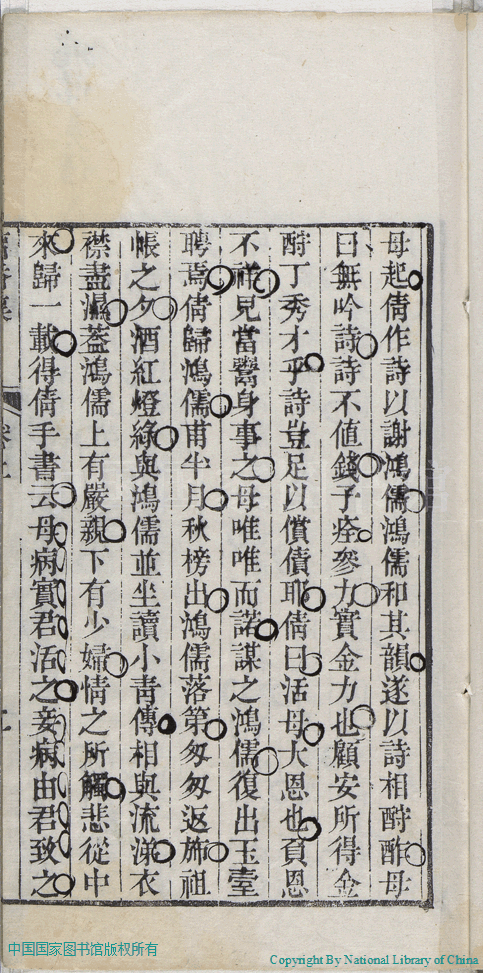 母起倩作詩以謝鴻儒鴻儒和其韻遂以詩相酧酢母
曰無吟詩詩不值錢子痊參力實金力也顧安所得金
酧丁秀才乎詩豈足以償債耶倩曰活母大恩也負恩
不祥見當鬻身事之母唯唯而諾謀之鴻儒復出玉臺
聘焉倩歸鴻儒甫半月秋榜出鴻儒落第匆匆返斾祖
帳之夕酒紅燈綠與鴻儒並坐讀小青傳相與流涕衣
襟盡濕葢鴻儒上有嚴親下有少婦情之所觸悲從中
來歸一載得倩手書云母病實君活之妾病由君致之
中国国家图书馆版权所有
Copyright By National Library of China